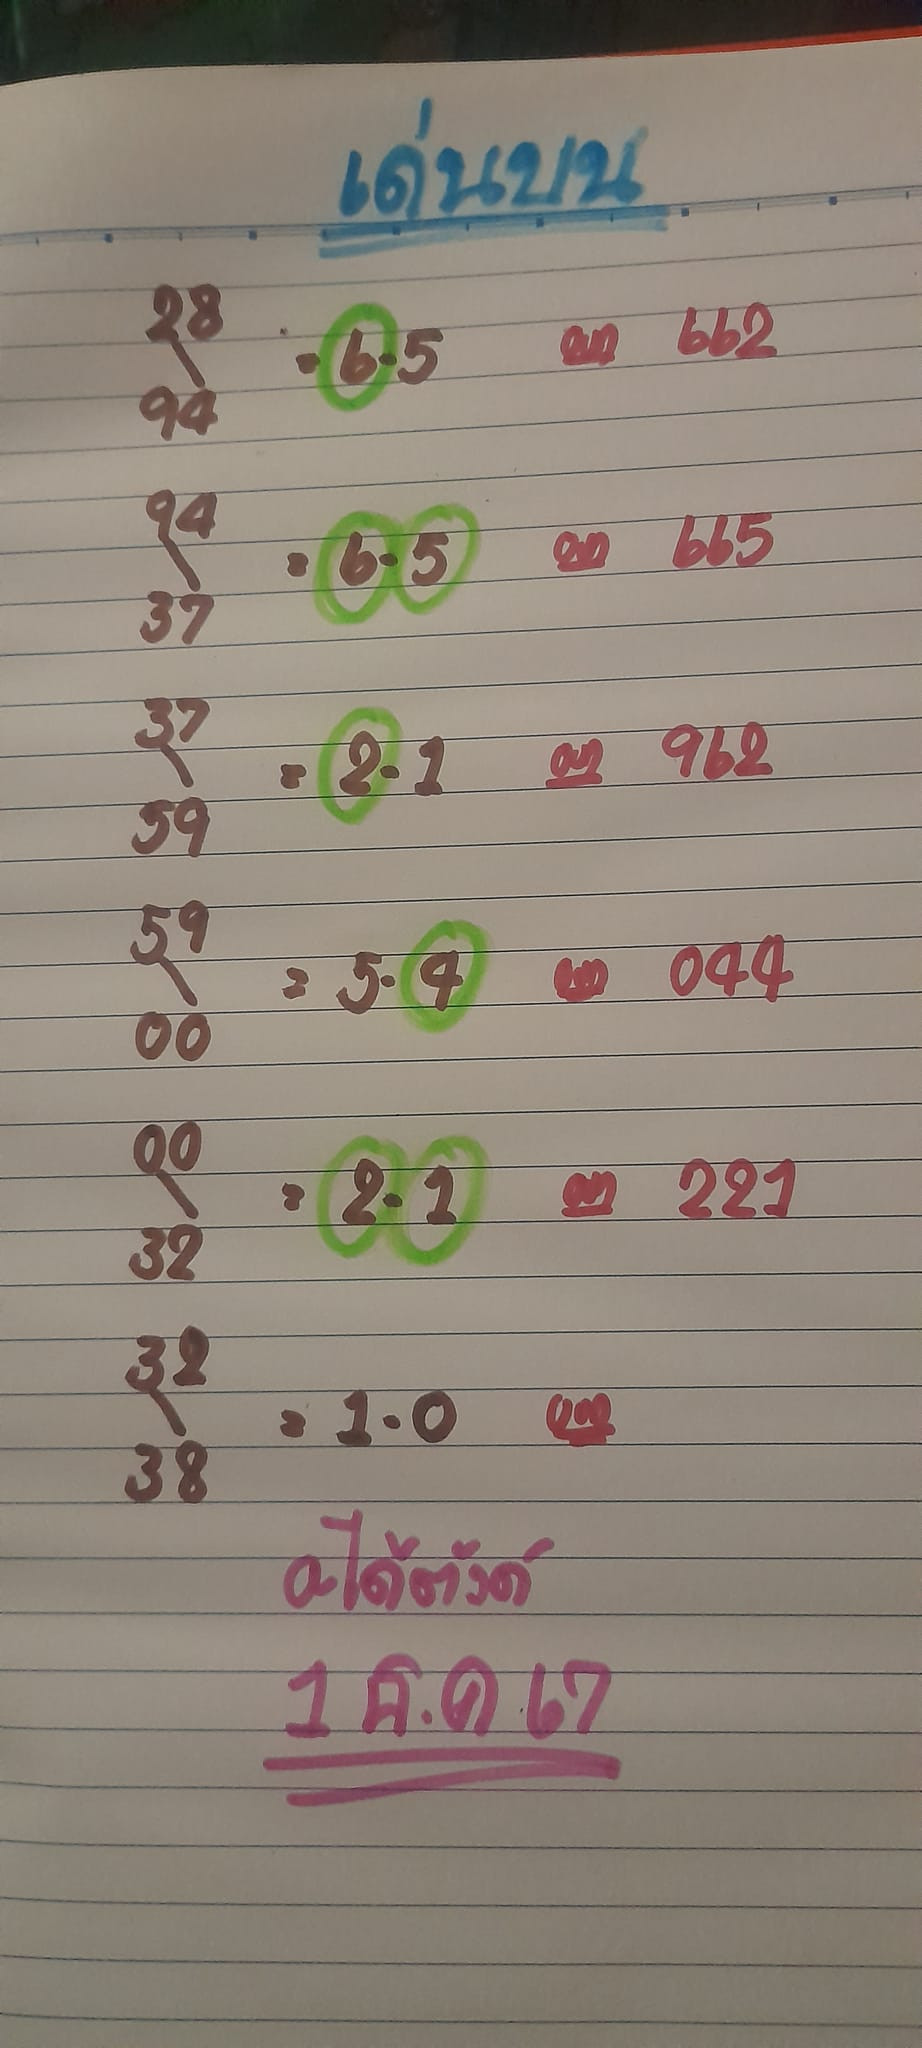 เด่นบน
28
94
= 6-5 ออก 662
94
37
= 6-5 ออก 665
37
59
= 2-1 ออก 962
59
00
= 5-4 ออก 044
00
32
= 2-1 ออก 221
32
38
= 1-0 ออก
1 ธ.ค 67